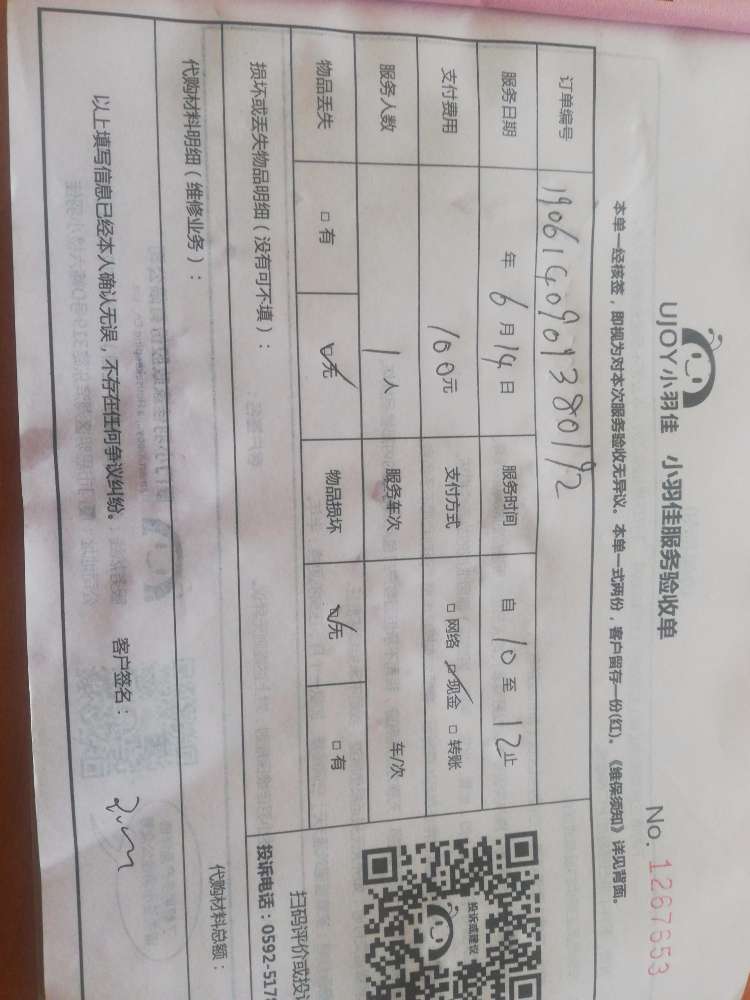 UJOY小羽佳 小羽佳服务验收单
No. 1267653
本单一经核签，即视为对本次服务验收无异议。本单一式两份，客户留存一份(红)。《维保须知》详见背面。
订单编号 1906140909380192
服务日期 年 6 月 14 日 服务时间 自 10 至 12 止
支付费用 100 元 支付方式 □ 网络 ☑ 现金 □ 转账
服务人数 1 人 服务车次 车/次
物品丢失 □ 有 ☑ 无 物品损坏 ☑ 无 □ 有
投诉或建议
扫码评价或投
损坏或丢失物品明细（没有可不填）：
投诉电话：0592-517
代购材料明细（维修业务）：
代购材料总额：
以上填写信息已经本人确认无误，不存在任何争议纠纷。 客户签名：